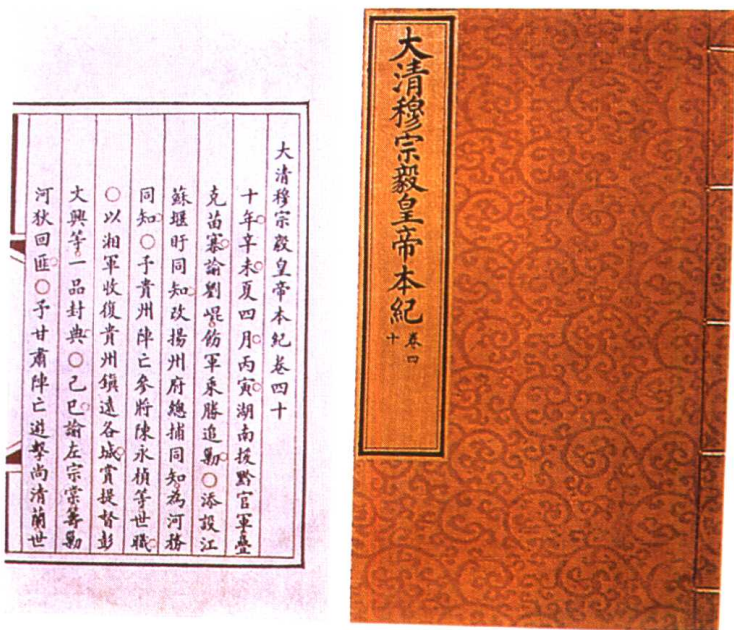 大清穆宗毅皇帝本紀
卷四
十
大清穆宗毅皇帝本紀卷四十
十年辛未夏四月丙寅湖南援黔官軍疊
克苗寨諭劉崐飭軍乘勝追勦○添設江
蘇堰盱同知改揚州府總捕同知為河務
同知○予貴州陣亡參將陳永楨等世職
○以湘軍收復貴州鎮遠各城賞提督彭
文興等一品封典○己巳諭左宗棠籌勦
河狄回匪○予甘肅陣亡遊擊尚清蘭世